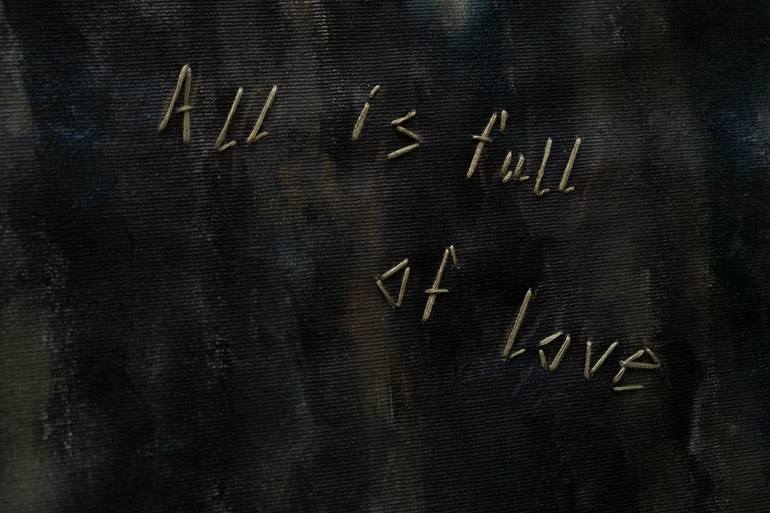 All is full
of love